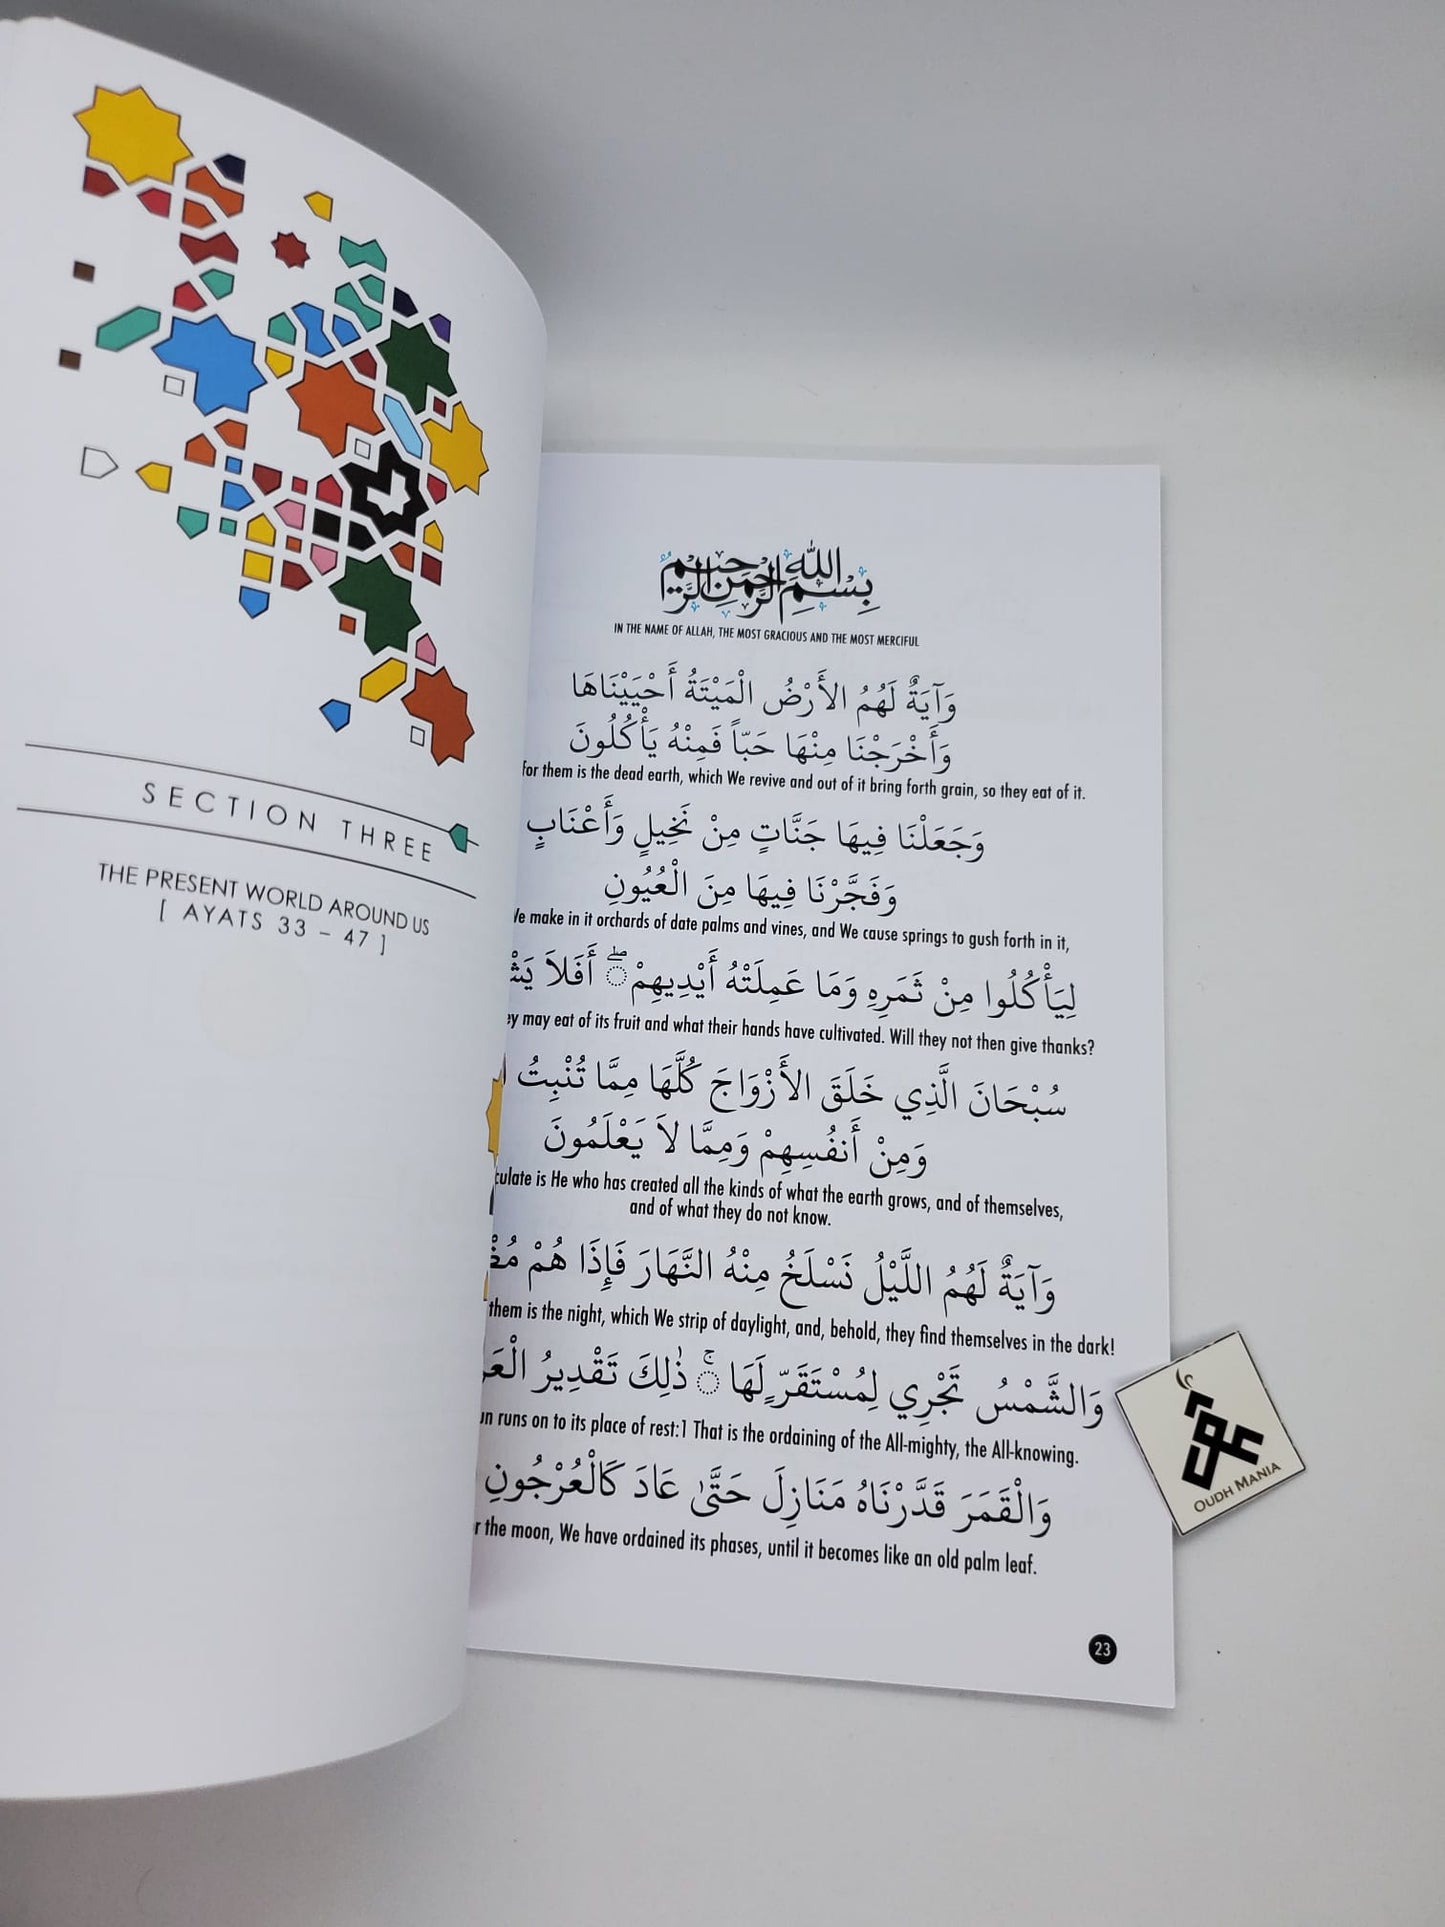 SECTION THREE
THE PRESENT WORLD AROUND US
[ AYATS 33 – 47 ]
بِسْمِ اللهِ الرَّحْمنِ الرَّحِيمِ
IN THE NAME OF ALLAH, THE MOST GRACIOUS AND THE MOST MERCIFUL
وَآيَةٌ لَهُمُ الأَرْضُ الْمَيْتَةُ أَحْيَيْنَاهَا
وَأَخْرَجْنَا مِنْهَا حَبّاً فَمِنْهُ يَأْكُلُونَ
for them is the dead earth, which We revive and out of it bring forth grain, so they eat of it.
وَجَعَلْنَا فِيهَا جَنَّاتٍ مِنْ نَخِيلٍ وَأَعْنَابٍ
وَفَجَّرْنَا فِيهَا مِنَ الْعُيُونِ
We make in it orchards of date palms and vines, and We cause springs to gush forth in it,
لِيَأْكُلُوا مِنْ ثَمَرِهِ وَمَا عَمِلَتْهُ أَيْدِيهِمْ ۖ أَفَلاَ
may eat of its fruit and what their hands have cultivated. Will they not then give thanks?
سُبْحَانَ الَّذِي خَلَقَ الأَزْوَاجَ كُلَّهَا مِمَّا تُنْبِتُ
وَمِنْ أَنفُسِهِمْ وَمِمَّا لاَ يَعْلَمُونَ
is He who has created all the kinds of what the earth grows, and of themselves,
and of what they do not know.
وَآيَةٌ لَهُمُ اللَّيْلُ نَسْلَخُ مِنْهُ النَّهَارَ فَإِذَا هُمْ
them is the night, which We strip of daylight, and, behold, they find themselves in the dark!
وَالشَّمْسُ تَجْرِي لِمُسْتَقَرٍّ لَهَا ۚ ذٰلِكَ تَقْدِيرُ
runs on to its place of rest:1 That is the ordaining of the All-mighty, the All-knowing.
وَالْقَمَرَ قَدَّرْنَاهُ مَنَازِلَ حَتَّىٰ عَادَ كَالْعُرْجُونِ
the moon, We have ordained its phases, until it becomes like an old palm leaf.
23
عود
OUDH MANIA